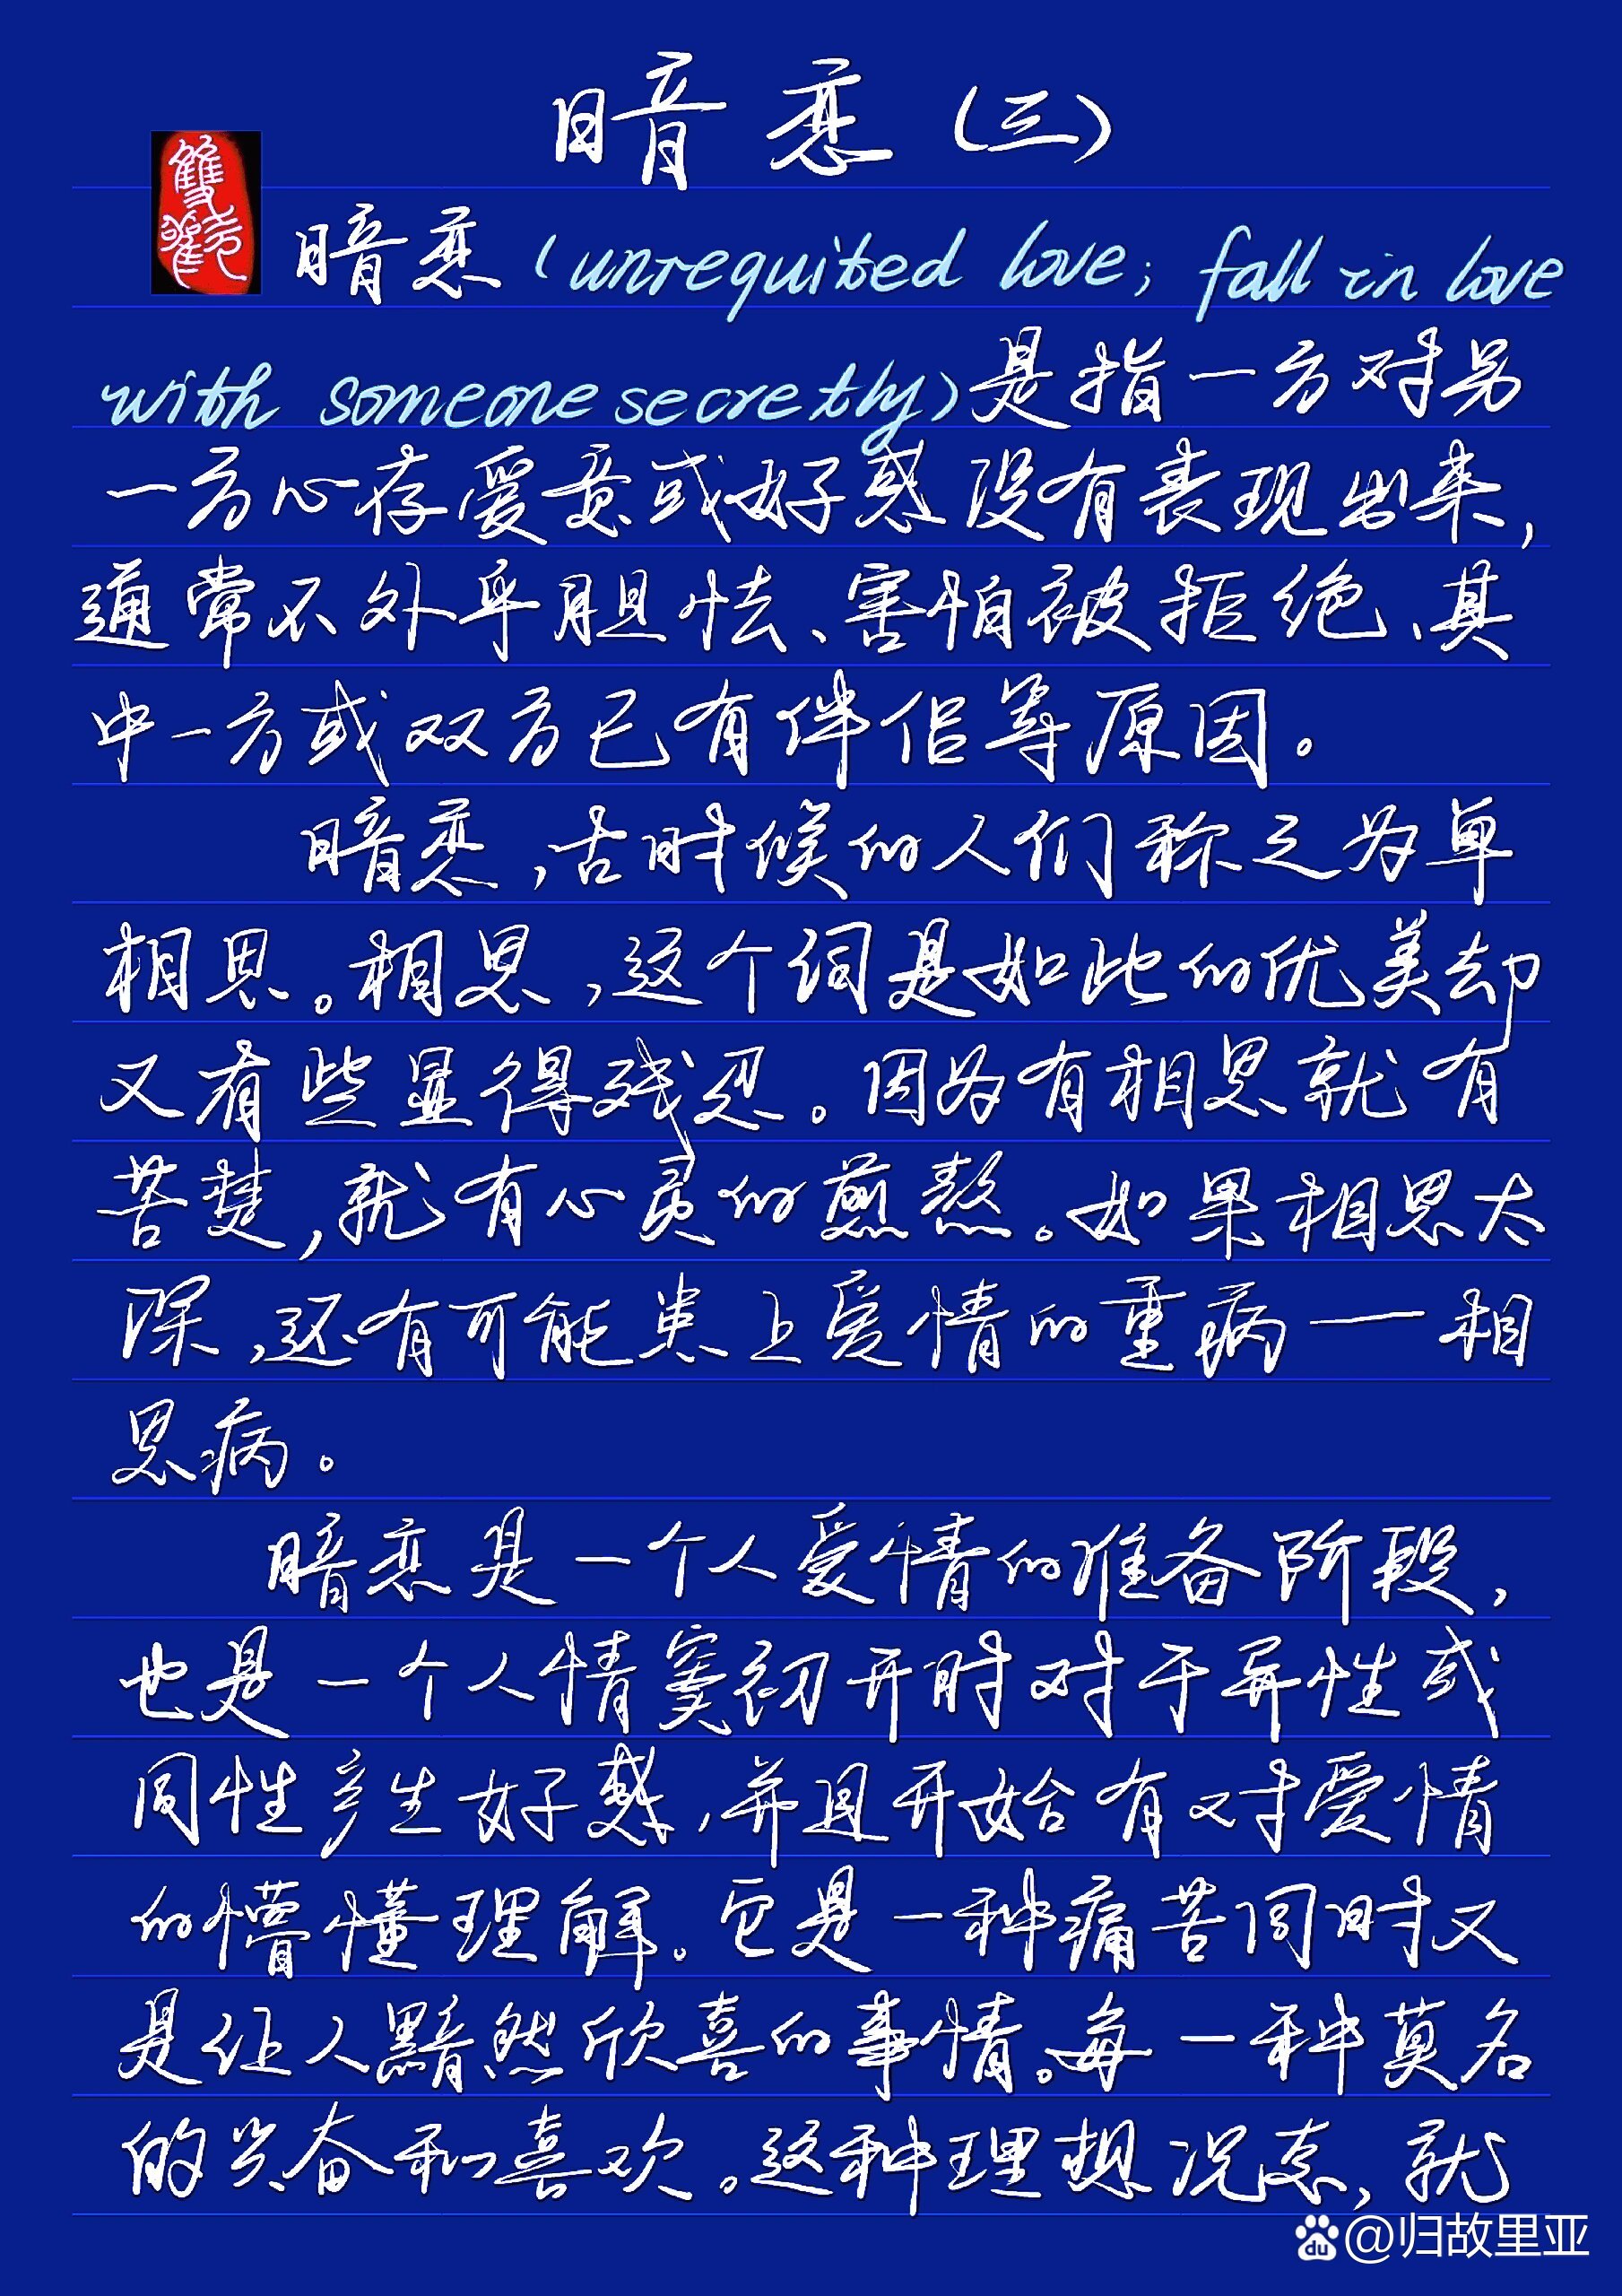 暗恋(三)
雙觀
暗恋(unrequited love; fall in love
with someone secretly)是指一方对另
一方心存爱意或好感没有表现出来,
通常不外乎胆怯、害怕被拒绝、其
中一方或双方已有伴侣等原因。
暗恋,古时候的人们称之为单
相思。相思,这个词是如此的优美却
又有些显得残忍。因为有相思就有
苦楚,就有心灵的煎熬。如果相思太
深,还有可能患上爱情的重病——相
思病。
暗恋是一个人爱情的准备阶段,
也是一个人情窦初开时对于异性或
同性产生好感,并且开始有对爱情
的懵懂理解。它是一种痛苦同时又
是让人黯然欣喜的事情。每一种莫名
的兴奋和喜欢。这种理想况态,就
du @归故里亚